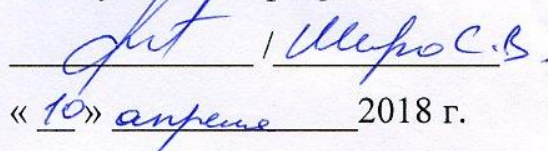 / Широ С.В.
« 10» апреля 2018 г.